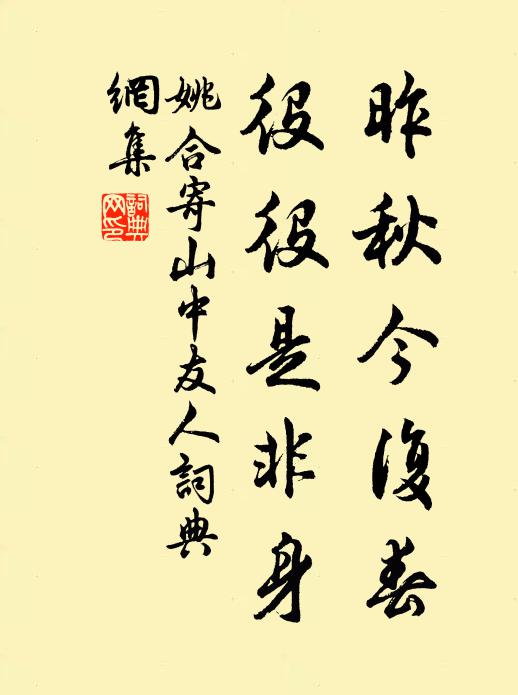 昨秋今復春
役役是非身
姚合寄山中友人詞典
網集
詞典
网印